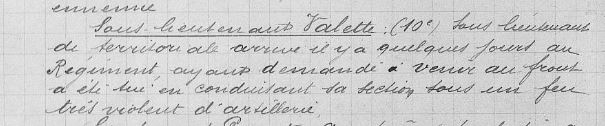 ennemie
Sous-lieutenant Valette : (10e) Sous lieutenant
de territoriale arrivé il y a quelques jours au
Régiment, ayant demandé à venir au front
a été tué en conduisant sa section sous un feu
très violent d'artillerie.